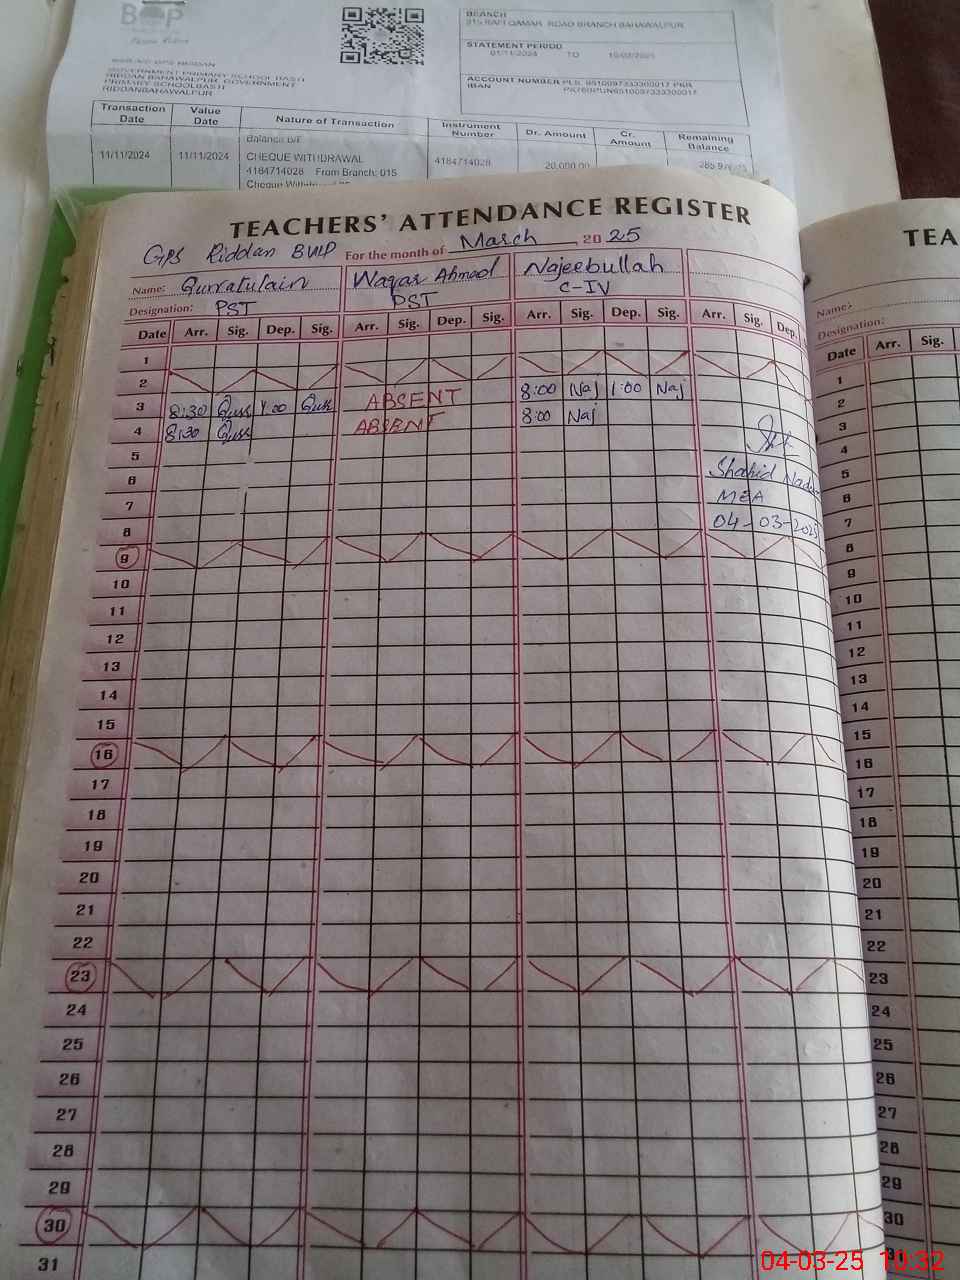 BOP
BRANCH
015 RAFI QAMAR ROAD BRANCH BAHAWALPUR
STATEMENT PERIOD
01/11/2024 TO
ACCOUNT NUMBER PLS
IBAN
GOVERNMENT PRIMARY SCHOOL BASTI
RIDDAN BAHAWALPUR, GOVERNMENT
PRIMARY SCHOOL BASTI
RIDDAN BAHAWALPUR
Transaction Date Value Date Nature of Transaction Instrument Number Dr. Amount Cr. Amount Remaining Balance
Balance b/f
11/11/2024 11/11/2024 CHEQUE WITHDRAWAL 4184714028 20,000.00
4184714028 From Branch: 015
TEACHERS' ATTENDANCE REGISTER
GPS Riddan BWP For the month of March 2025
Name: Qurratulain Waqar Ahmed Najeebullah
Designation: PST PST C-IV
Date Arr. Sig. Dep. Sig. Arr. Sig. Dep. Sig. Arr. Sig. Dep. Sig. Arr. Sig. Dep.
1
2
3 8:30 Qurr 1:00 Qurr ABSENT 8:00 Naj 1:00 Naj
4 8:30 Qurr ABSENT 8:00 Naj
5
6 Shahid
7 MEA
8 04-03-2025
9
10
11
12
13
14
15
16
17
18
19
20
21
22
23
24
25
26
27
28
29
30
31
TEA
Name:
Designation:
Date Arr. Sig.
1
2
3
4
5
6
7
8
9
10
11
12
13
14
15
16
17
18
19
20
21
22
23
24
25
26
27
28
29
30
04-03-25 10:32